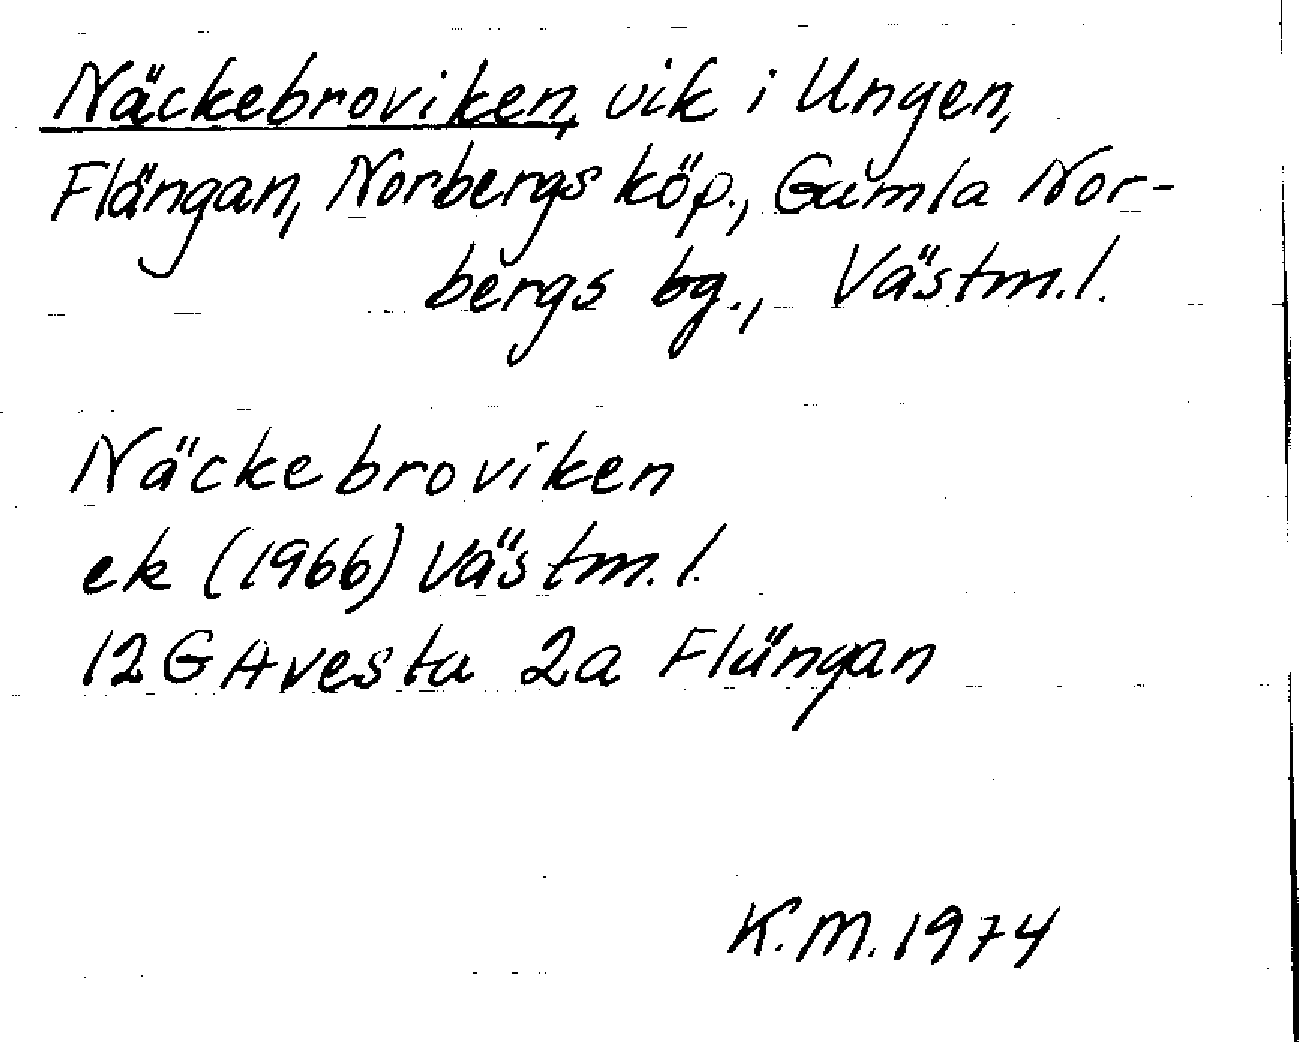 Näckebroviken, vik i Ungen,
Flängan, Norbergs köp., Gamla Nor-
bergs bg., Västm.l.
Näckebroviken
ek (1966) Västm.l.
12G Avesta 2a Flängan
K.M. 1974